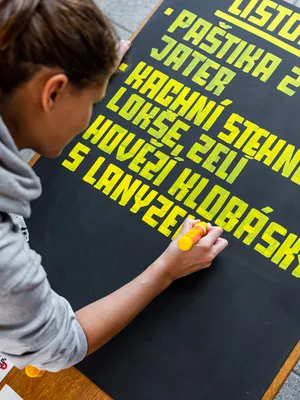 LISTO
• PAŠTIKA Z
JATER
KACHNÍ STEHN
LOKŠE, ZELÍ
HOVĚZÍ KLOBÁSK
S LANYŽE